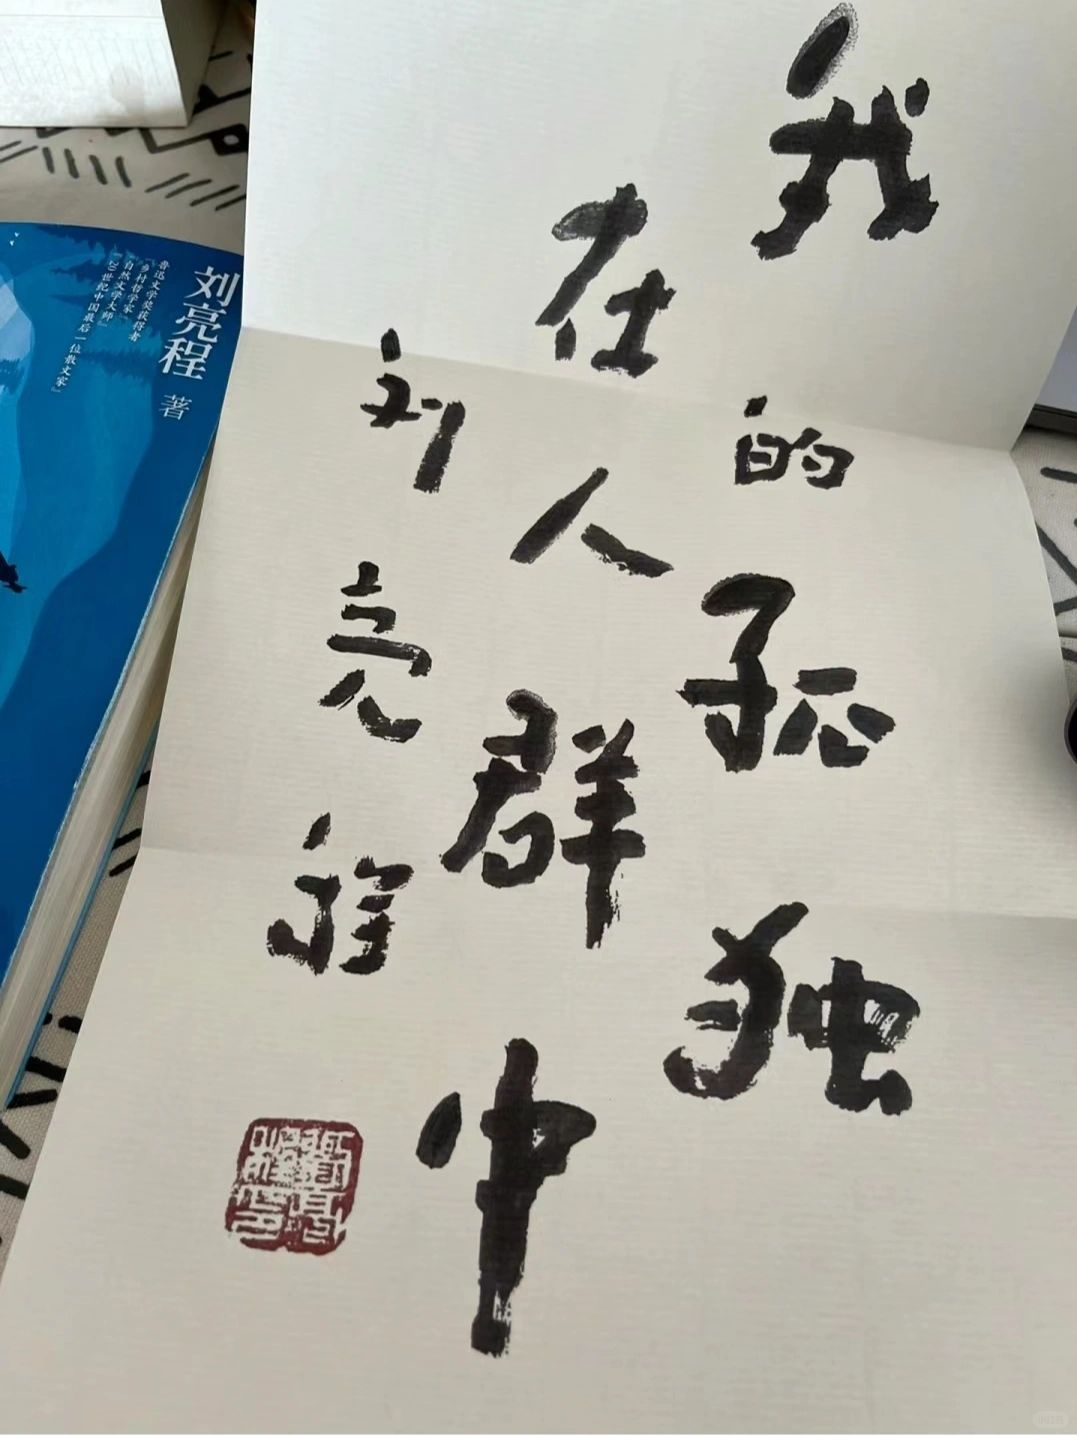 我的孤独
在人群中
刘亮程
刘亮程 著
鲁迅文学奖获得者
“乡村哲学家”
“自然文学大师”
“20世纪中国最后一位散文家”
小红书